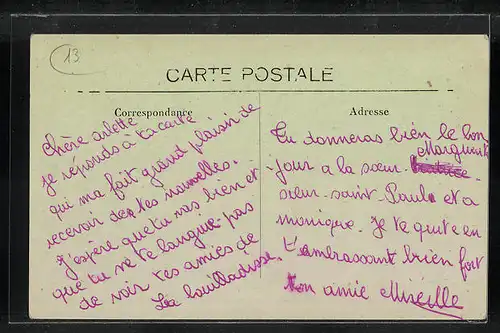 13
CARTE POSTALE
Correspondance
Adresse
Chère arlette
je réponds à ta carte
qui ma fait grand plaisir de
recevoir des tes nouvelles.
J'espère que tu vas bien et
que tu ne te langui pas
de voir tes amies de
La bouilladisse.
Tu donneras bien le bon
Marguerite
jour a la sœur
sœur saint Paul et a
monique. Je te quite en
t'embrassant bien fort
ton amie Mireille